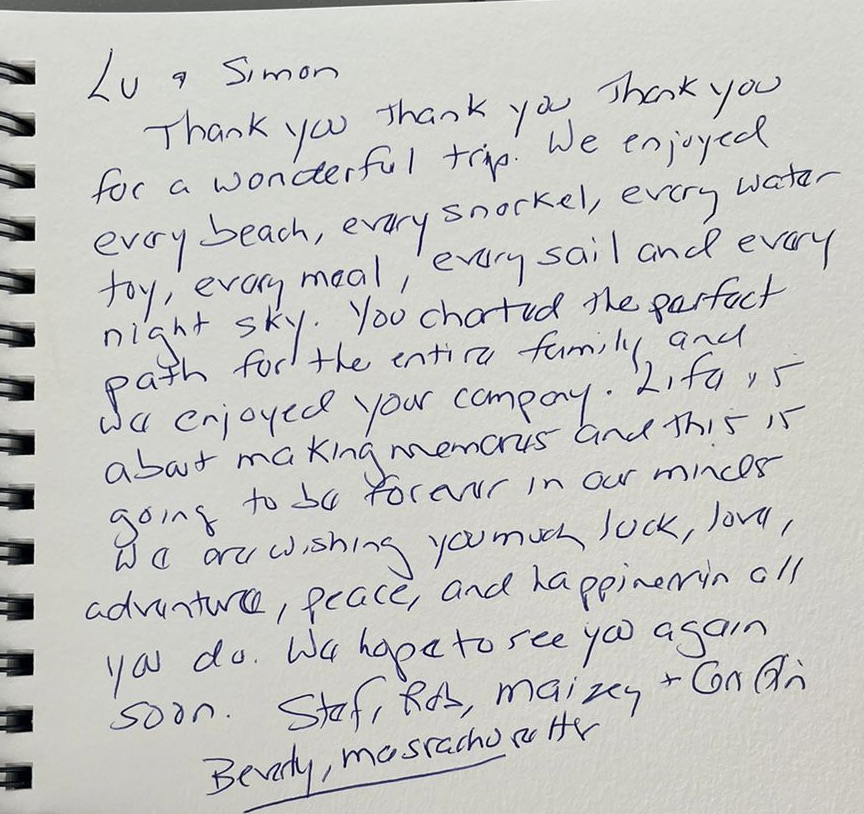 Lu & Simon
Thank you Thank you Thank you
for a wonderful trip. We enjoyed
every beach, every snorkel, every water
toy, every meal, every sail and every
night sky. You charted the perfect
path for the entire family and
we enjoyed your company. Life is
about making memories and this is
going to be forever in our minds
We are wishing you much luck, love,
adventure, peace, and happiness in all
you do. We hope to see you again
soon. Stef, Rob, Maizey +
Beverly, Massachusetts